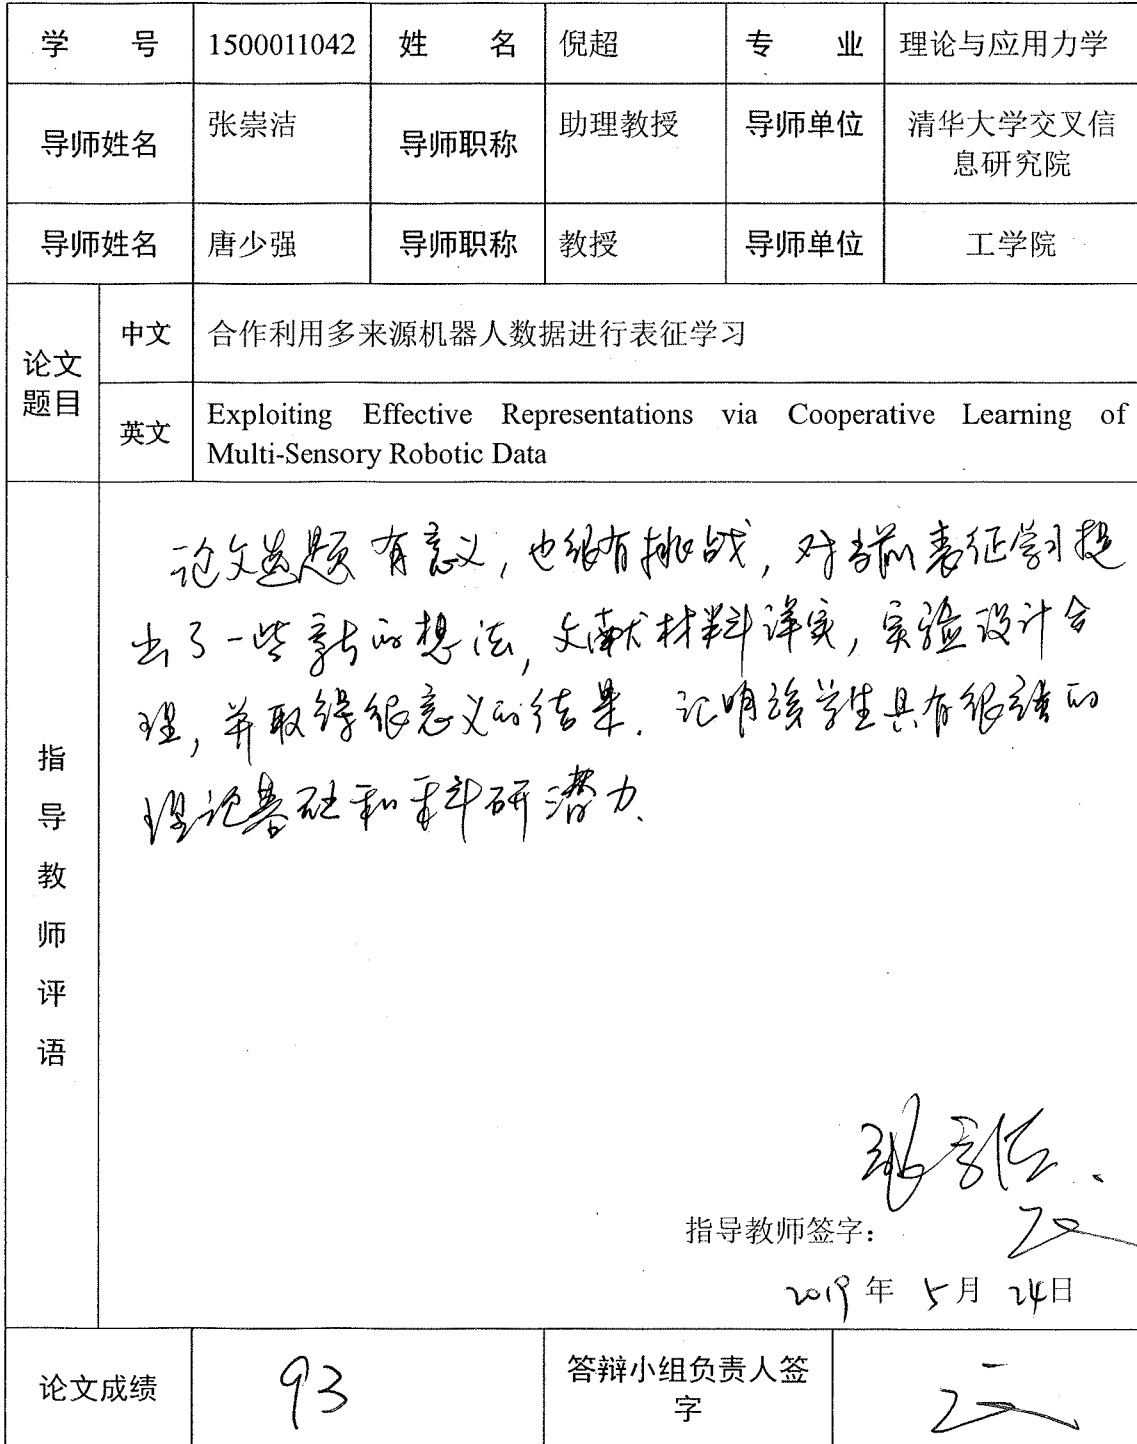 学 号 1500011042 姓 名 倪超 专 业 理论与应用力学
导师姓名 张崇洁 导师职称 助理教授 导师单位 清华大学交叉信
息研究院
导师姓名 唐少强 导师职称 教授 导师单位 工学院
论文
题目
中文 合作利用多来源机器人数据进行表征学习
英文 Exploiting Effective Representations via Cooperative Learning of
Multi-Sensory Robotic Data
指
导
教
师
评
语
论文选题有意义,也很有挑战,对当前表征学习提
出了一些新的想法,文献材料详实,实验设计合
理,并取得很意义的结果.证明该学生具有很强的
理论基础和科研潜力.
指导教师签字:
2019 年 5 月 24 日
论文成绩 93 答辩小组负责人签
字